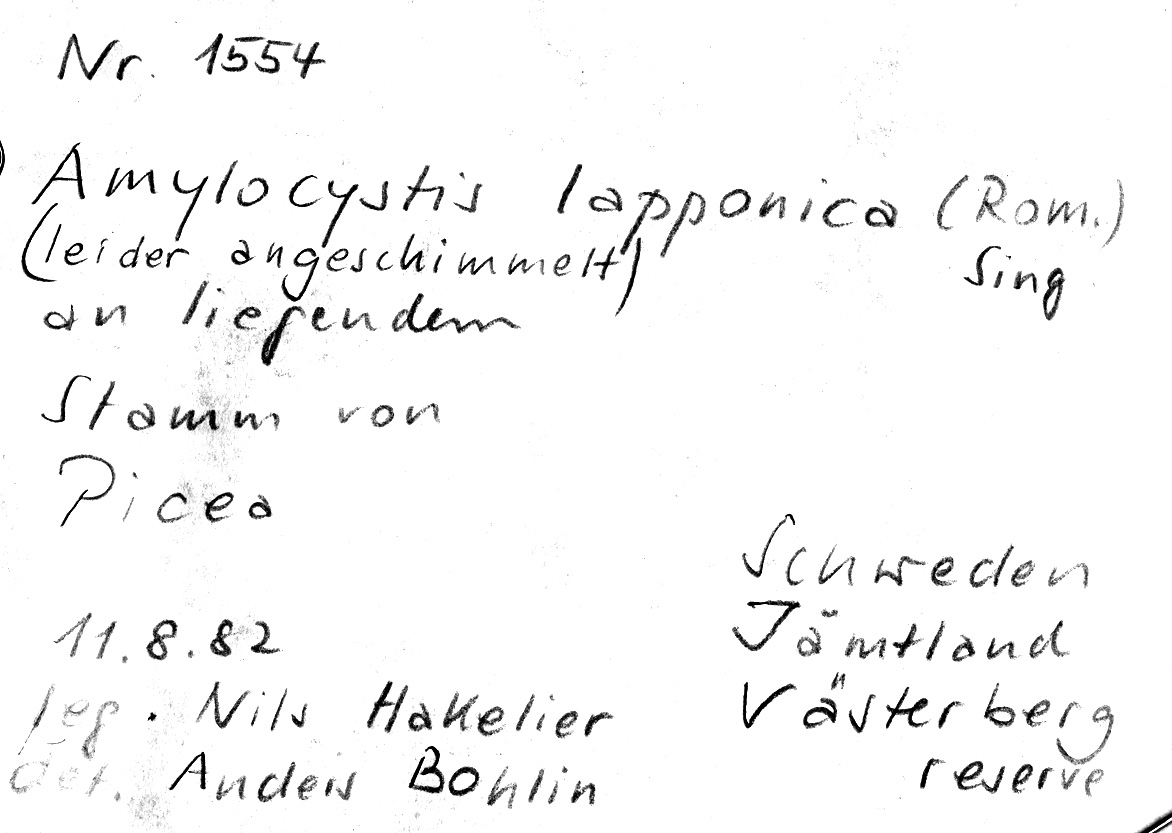 Nr. 1554
Amylocystis lapponica (Rom.)
Sing
(leider angeschimmelt)
an liegendem
Stamm von
Picea
Schweden
Jämtland
Västerberg
reserve
11.8.82
leg. Nils Hakelier
det. Anders Bohlin